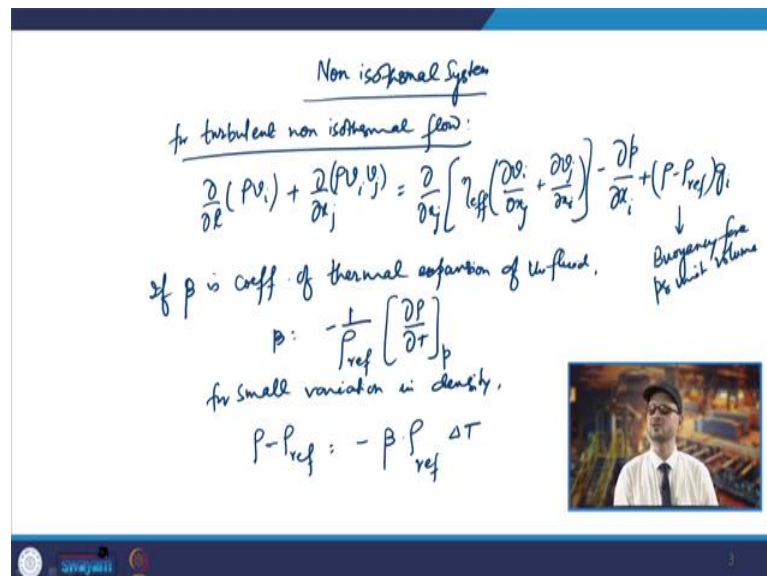 Non isothermal System
for turbulent non isothermal flow:
∂/∂t (ρv_i) + ∂/∂x_j (ρv_i v_j) = ∂/∂x_j [η_eff (∂v_i/∂x_j + ∂v_j/∂x_i)] - ∂p/∂x_i + (ρ-ρ_ref)g_i
↓
Buoyancy force
per unit volume
If β is coeff. of thermal expansion of the fluid.
β: -1/ρ_ref [∂ρ/∂T]_p
for small variation in density,
ρ-ρ_ref : - β.ρ_ref ΔT
swayam
3